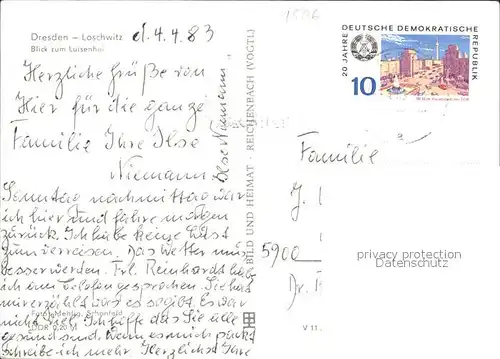 Dresden – Loschwitz
Blick zum Luisenhof
d. 4.4.83
Herzliche Grüße von
Hier für die ganze
Familie Ihre Ilse
Niemann
Sonntag nachmittag war
ich hier und fahre morgen
zurück. Ich habe keine Lust
zum verreisen. Das Wetter muß
besser werden. Frl. Reinhardt hab
ich am Telefon gesprochen. Sie hat
mir erzählt was es so gibt. Es war
nicht viel. Ich hoffe das Sie alle
gesund sind. Wenn es mich packt
Schreibe ich mehr. Herzlichst Ihre
Ilse Niemann
Schönfeld
DDR 0,20 M
BILD UND HEIMAT · REICHENBACH (VOGTL)
1506
20 JAHRE DEUTSCHE DEMOKRATISCHE REPUBLIK
10
Familie
J.
5900
Dr.
V 11
privacy protection
Datenschutz